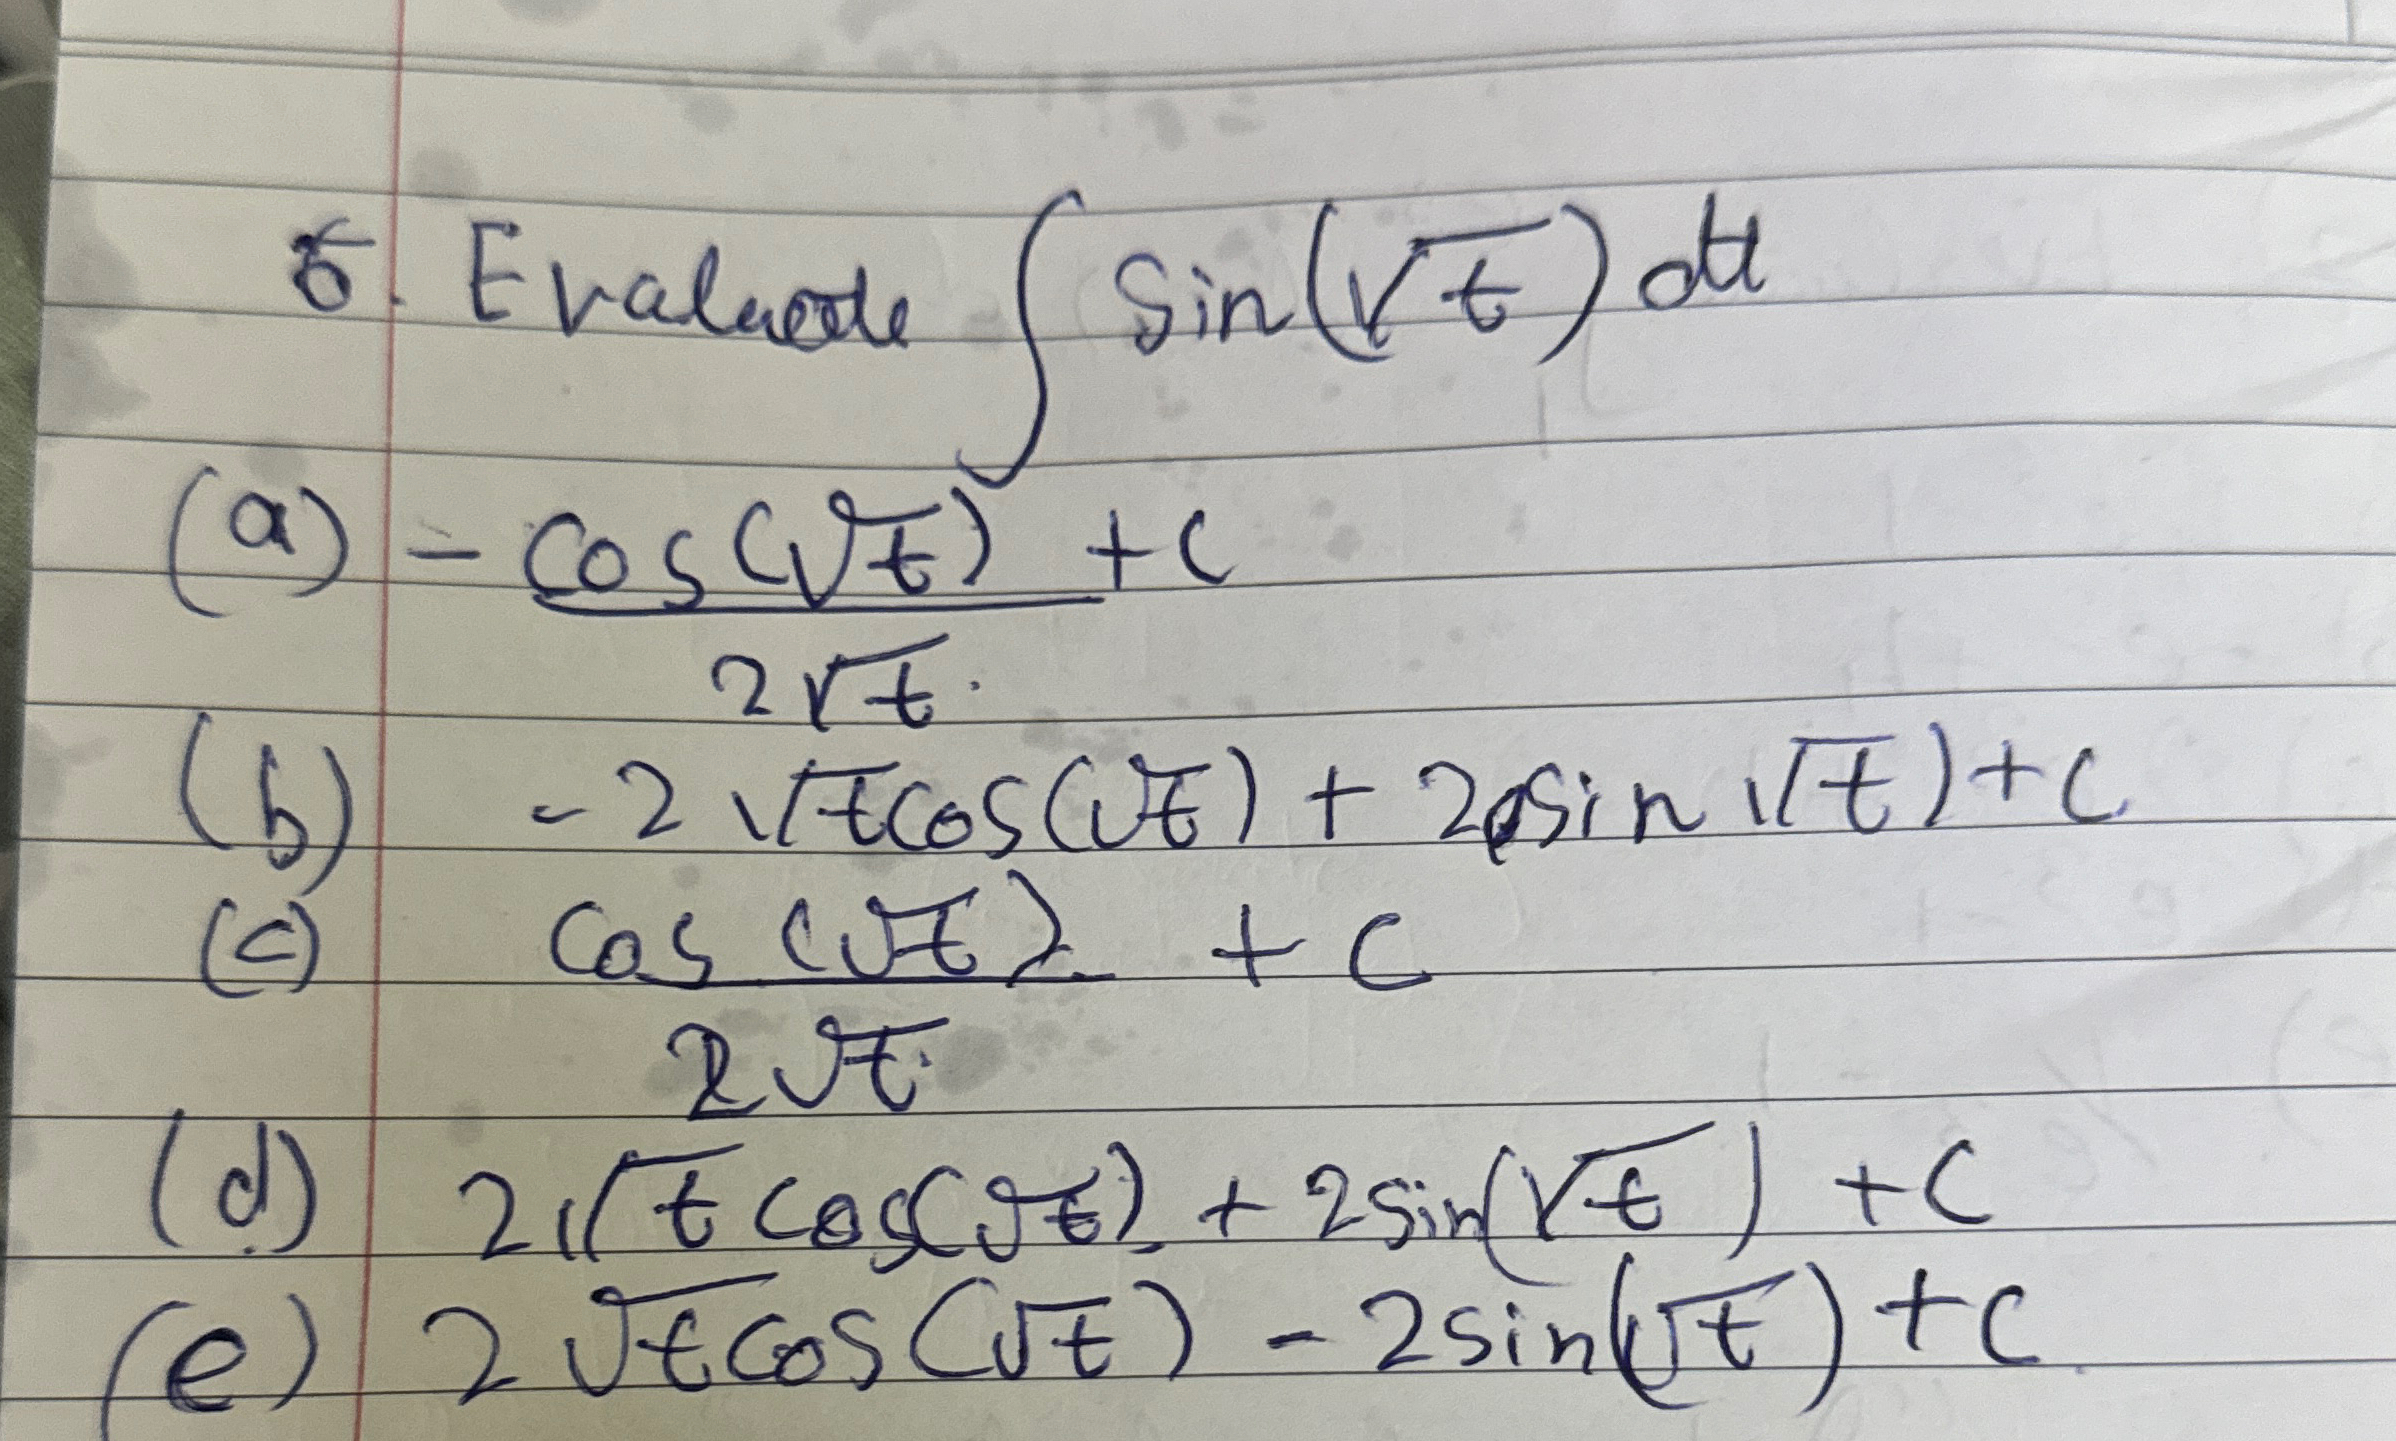 5. Evaluate ∫ Sin(√t) dt
(a) - cos(√t) +c
2√t.
(b) -2√t cos(√t) + 2sin√t)+c
(c) cos (√t) + c
2√t.
(d) 2√t cos(√t) + 2sin(√t) +c
(e) 2√t cos(√t) - 2sin(√t)+c